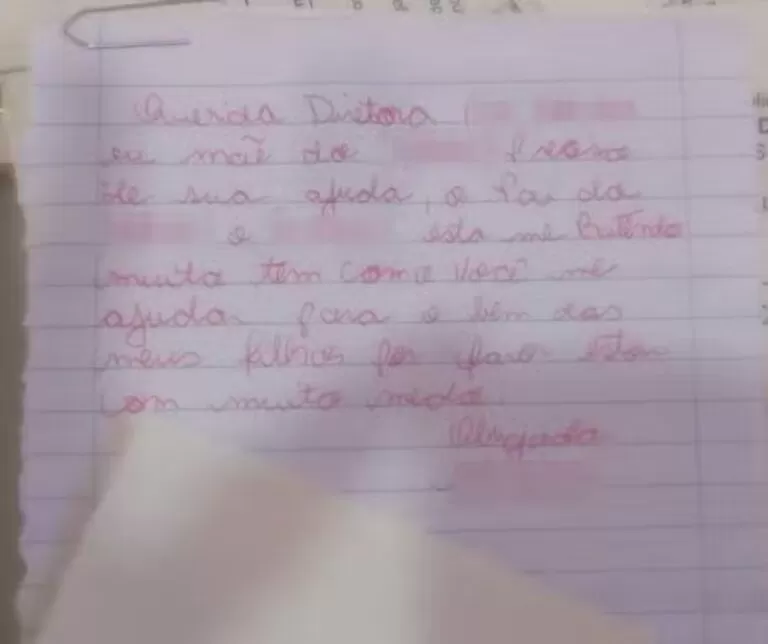 Querida Diretora
eu mãe da preciso
de sua ajuda, o Pai da
o esta me Batendo
muito tem como você me
ajudar para o bem dos
meus filhos por favor estou
com muito medo
Obrigada